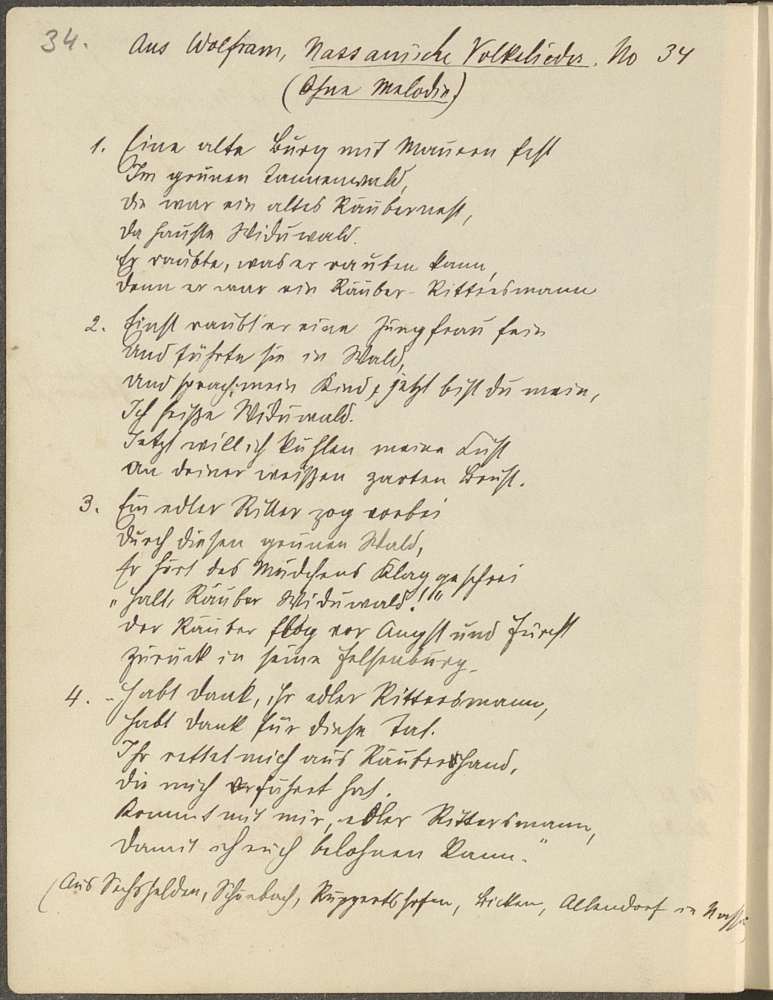 34. Aus Wolfram, Nassauische Volkslieder. No 34
(Ohne Melodie)
1. Eine alte Burg mit Mauern fest
Im grünen Tannenwald,
die war ein altes Räubernest,
da hauste Widuwald.
Er raubte, was er rauben kann,
denn er war ein Räuber-Rittersmann
2. Einst raubt er eine Jungfrau fein
Und führte sie in Wald,
Und sprach: mein Kind, jetzt bist du mein,
Ich heiße Widuwald.
Jetzt will ich kühlen meine Lust
an deiner weißen zarten Brust.
3. Ein edler Ritter zog vorbei
Durch diesen grünen Wald,
Er hört des Mädchens Klaggeschrei
"Halt, Räuber Widuwald!"
Der Räuber flog vor Angst und Furcht
zurück in seine Felsenburg.
4. "Habt Dank, ihr edler Rittersmann,
Habt Dank für diese Tat.
Ihr rettet mich aus Räubershand,
die mich verführet hat.
Kommt mit mir, edler Rittersmann,
damit ich euch belohnen kann."
(Aus Sechshelden, Schönbach, Ruppertshofen, Bicken, Allendorf in